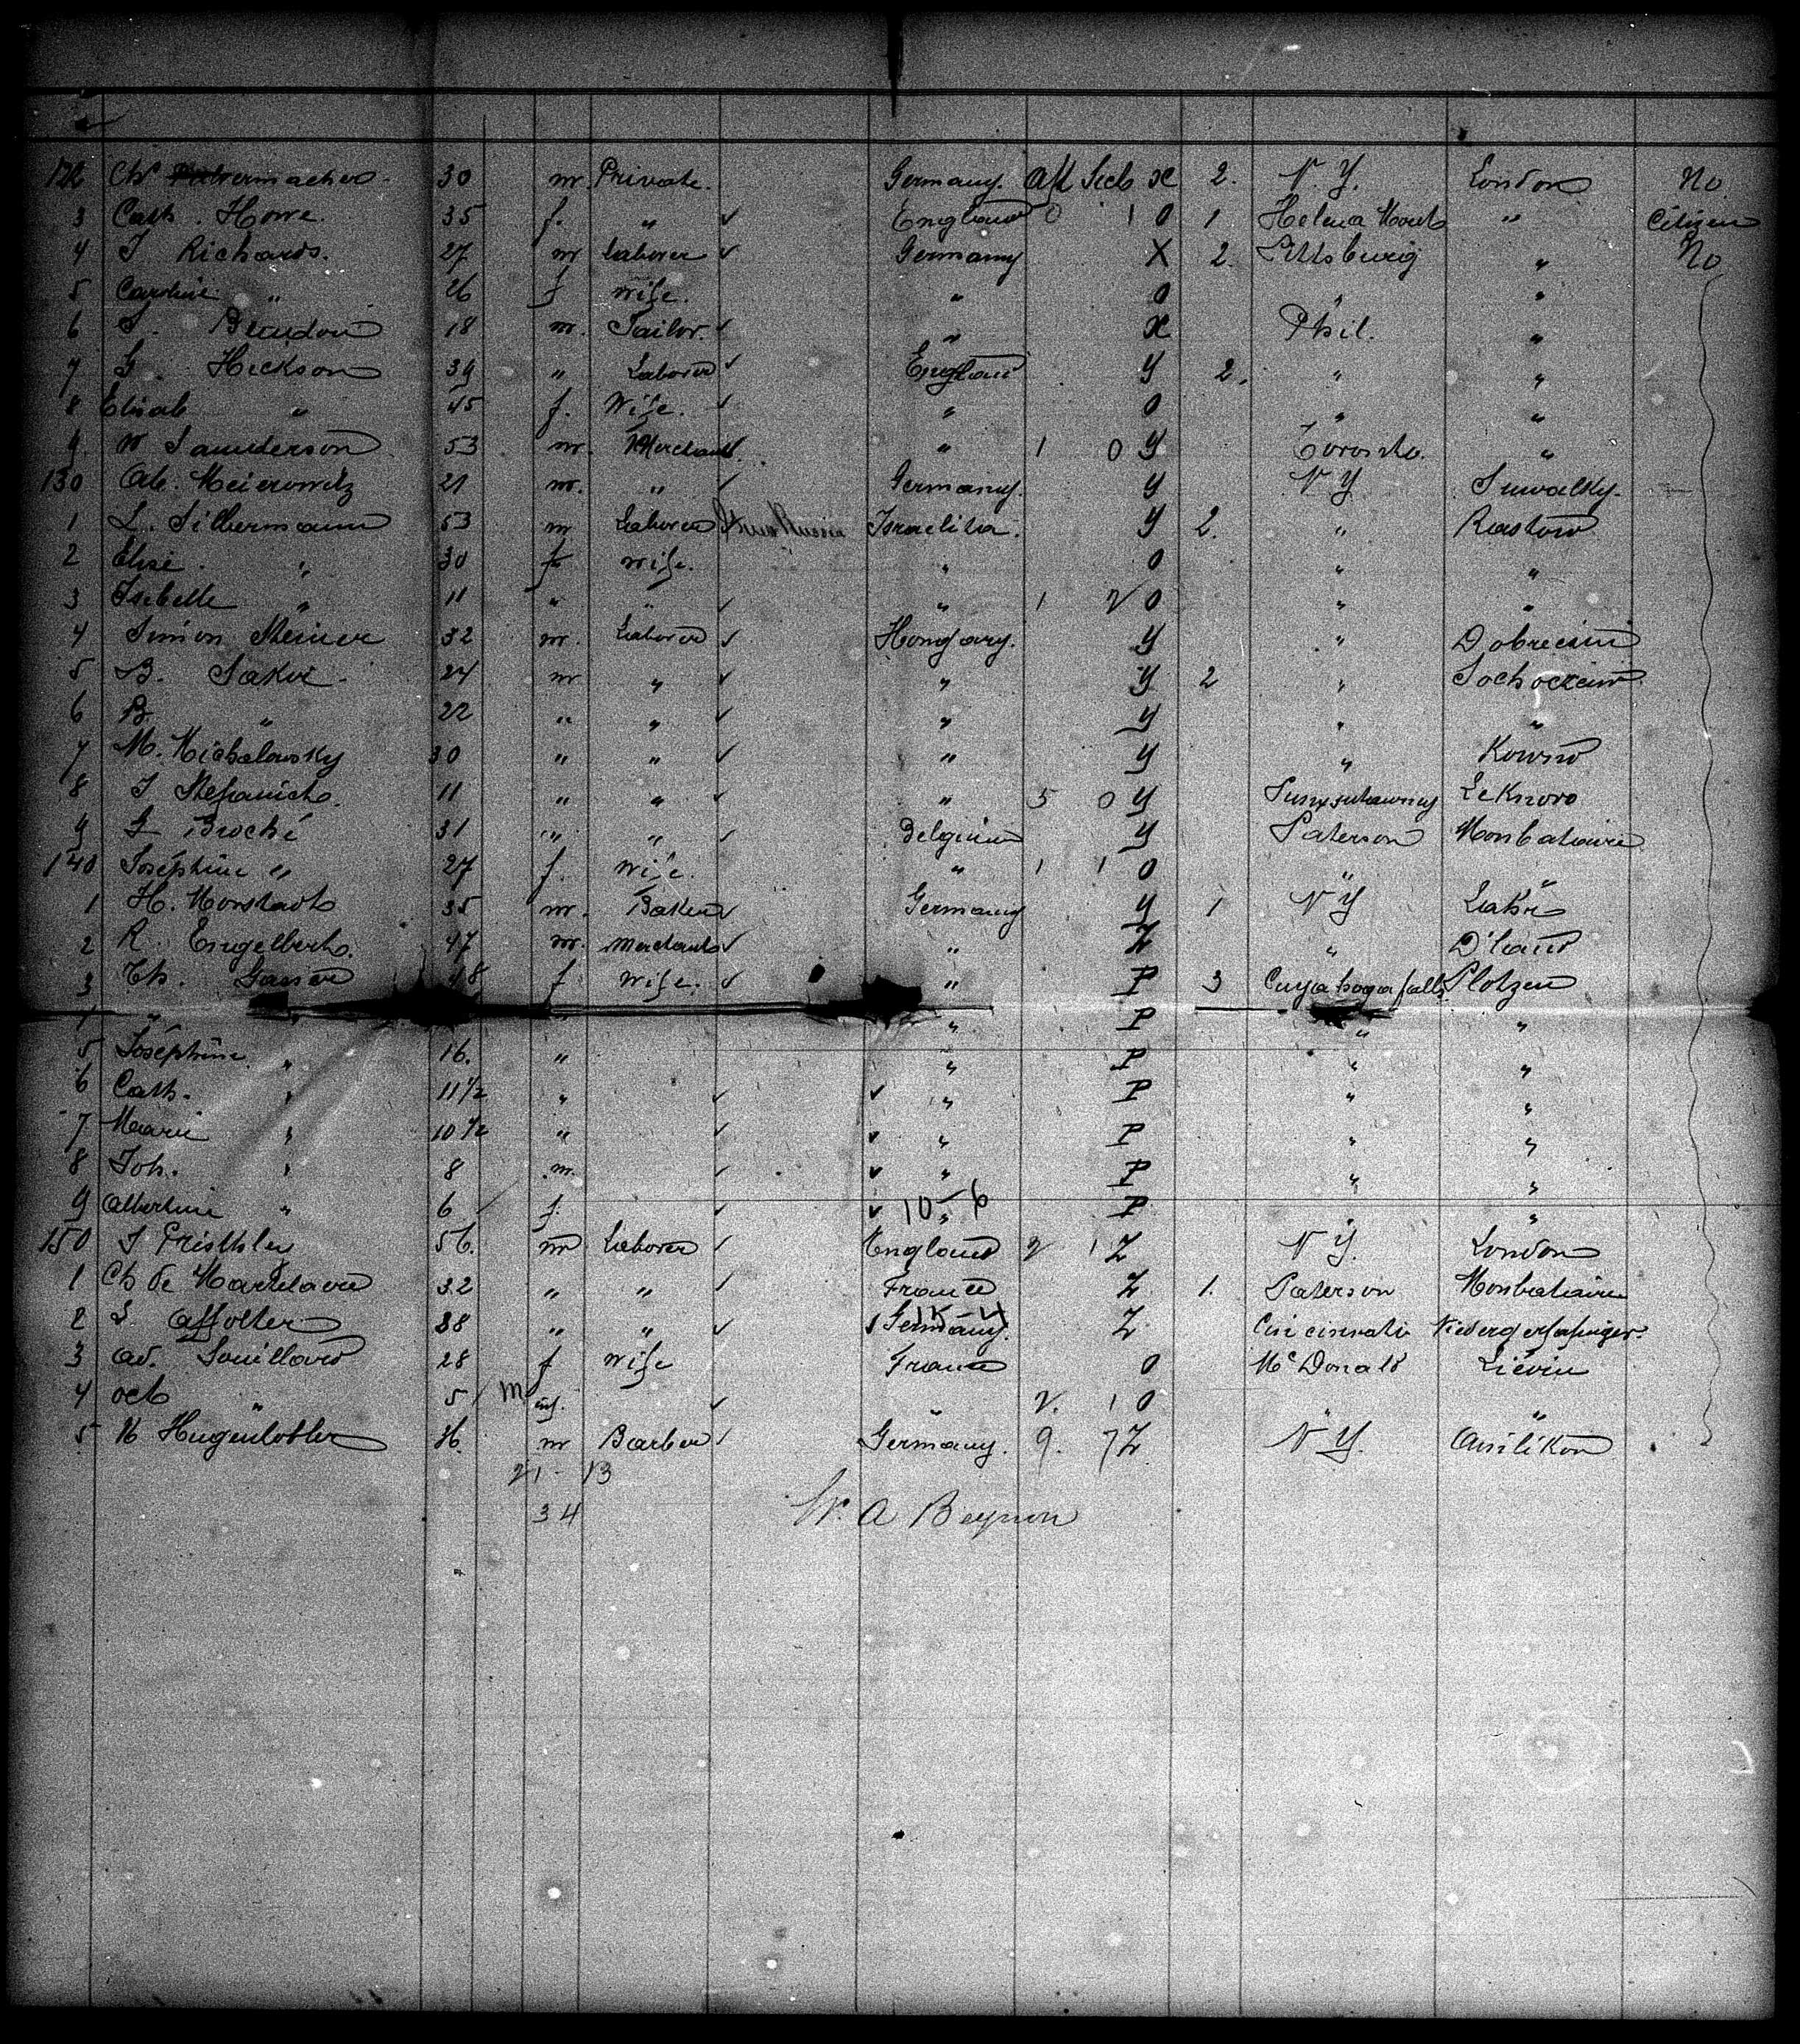 122 Ch. 30 m. Private. Germany. Aft Sieb x 2. N. Y. London No
3 Cath. Howe. 35 f. " ✓ England 0 1 0 1 Helena Mont " Citizen
4 J Richards. 27 m laborer ✓ Germany X 2. Pittsburg " No
5 Caroline " 26 f wife. " 0 " "
6 18 m. Tailor. ✓ " x Phil. "
7 G. Hickson 39 " Laborer ✓ England Y 2. " "
8 Elisab " 45 f. Wife. ✓ " 0 " "
9. W Saunderson 53 m. Merchant. " 1 0 Y Toronto. "
130 Ab. Meierowitz 21 m. " ✓ Germany. Y N Y Suwalky.
1 L. Silbermann 53 m Laborer Russia Israelita. Y 2. " Rastow
2 Elise. " 30 f wife. " 0 " "
3 Isebelle " 11 " " ✓ " 1 2 0 " "
4 Simon Steiner 32 m. Laborer ✓ Hongary. Y " Dobrecsin
5 B. Saker. 24 m " ✓ " Y 2 " Sochoczew
6 B. " 22 " " ✓ " Y " "
7 M. Michalowsky 30 " " ✓ " Y " Kowno
8 J Stefanich. 11 " " ✓ " 5 0 Y Leknoro
9 L Broché 31 " " ✓ Belgium Y Paterson Monbatiaire
140 Josephine " 27 f. Wife. " 1 1 0 " "
1 H. Morstadt 35 m. Baker ✓ Germany Y 1 N Y Lahr
2 R. Engelbert. 47 m. Merchant ✓ " Z " D'land
3 Th. Gasser 48 f Wife. ✓ " P 3 Cuyahoga falls Plotzen
" " " P " "
5 Josephine " 16. " " P " "
6 Cath. " 11 1/2 " ✓ ✓ " P " "
7 Marie " 10 1/2 " ✓ ✓ " P " "
8 Joh. " 8 m. ✓ ✓ " P " "
9 Albertine " 6 f. ✓ ✓ 10-6 " P " "
150 J Pristhler 56. m Laborer ✓ England 2 1 Z N Y. London
1 Ch de Martelaere 32 " " ✓ France Z 1. Paterson Monbatiaire
2 J. Affolter 38 " " ✓ Germany. Z Cincinnati
3 Ad. Souillard 28 f wife France 0 McDonald Liévin
4 oct " 5 m inf. ✓ " 2. 1 0 " "
5 K Hugentobler m Barber ✓ Germany. 9. 7 Z N Y. Amlikon
21 - 13
34 W. A Beynon